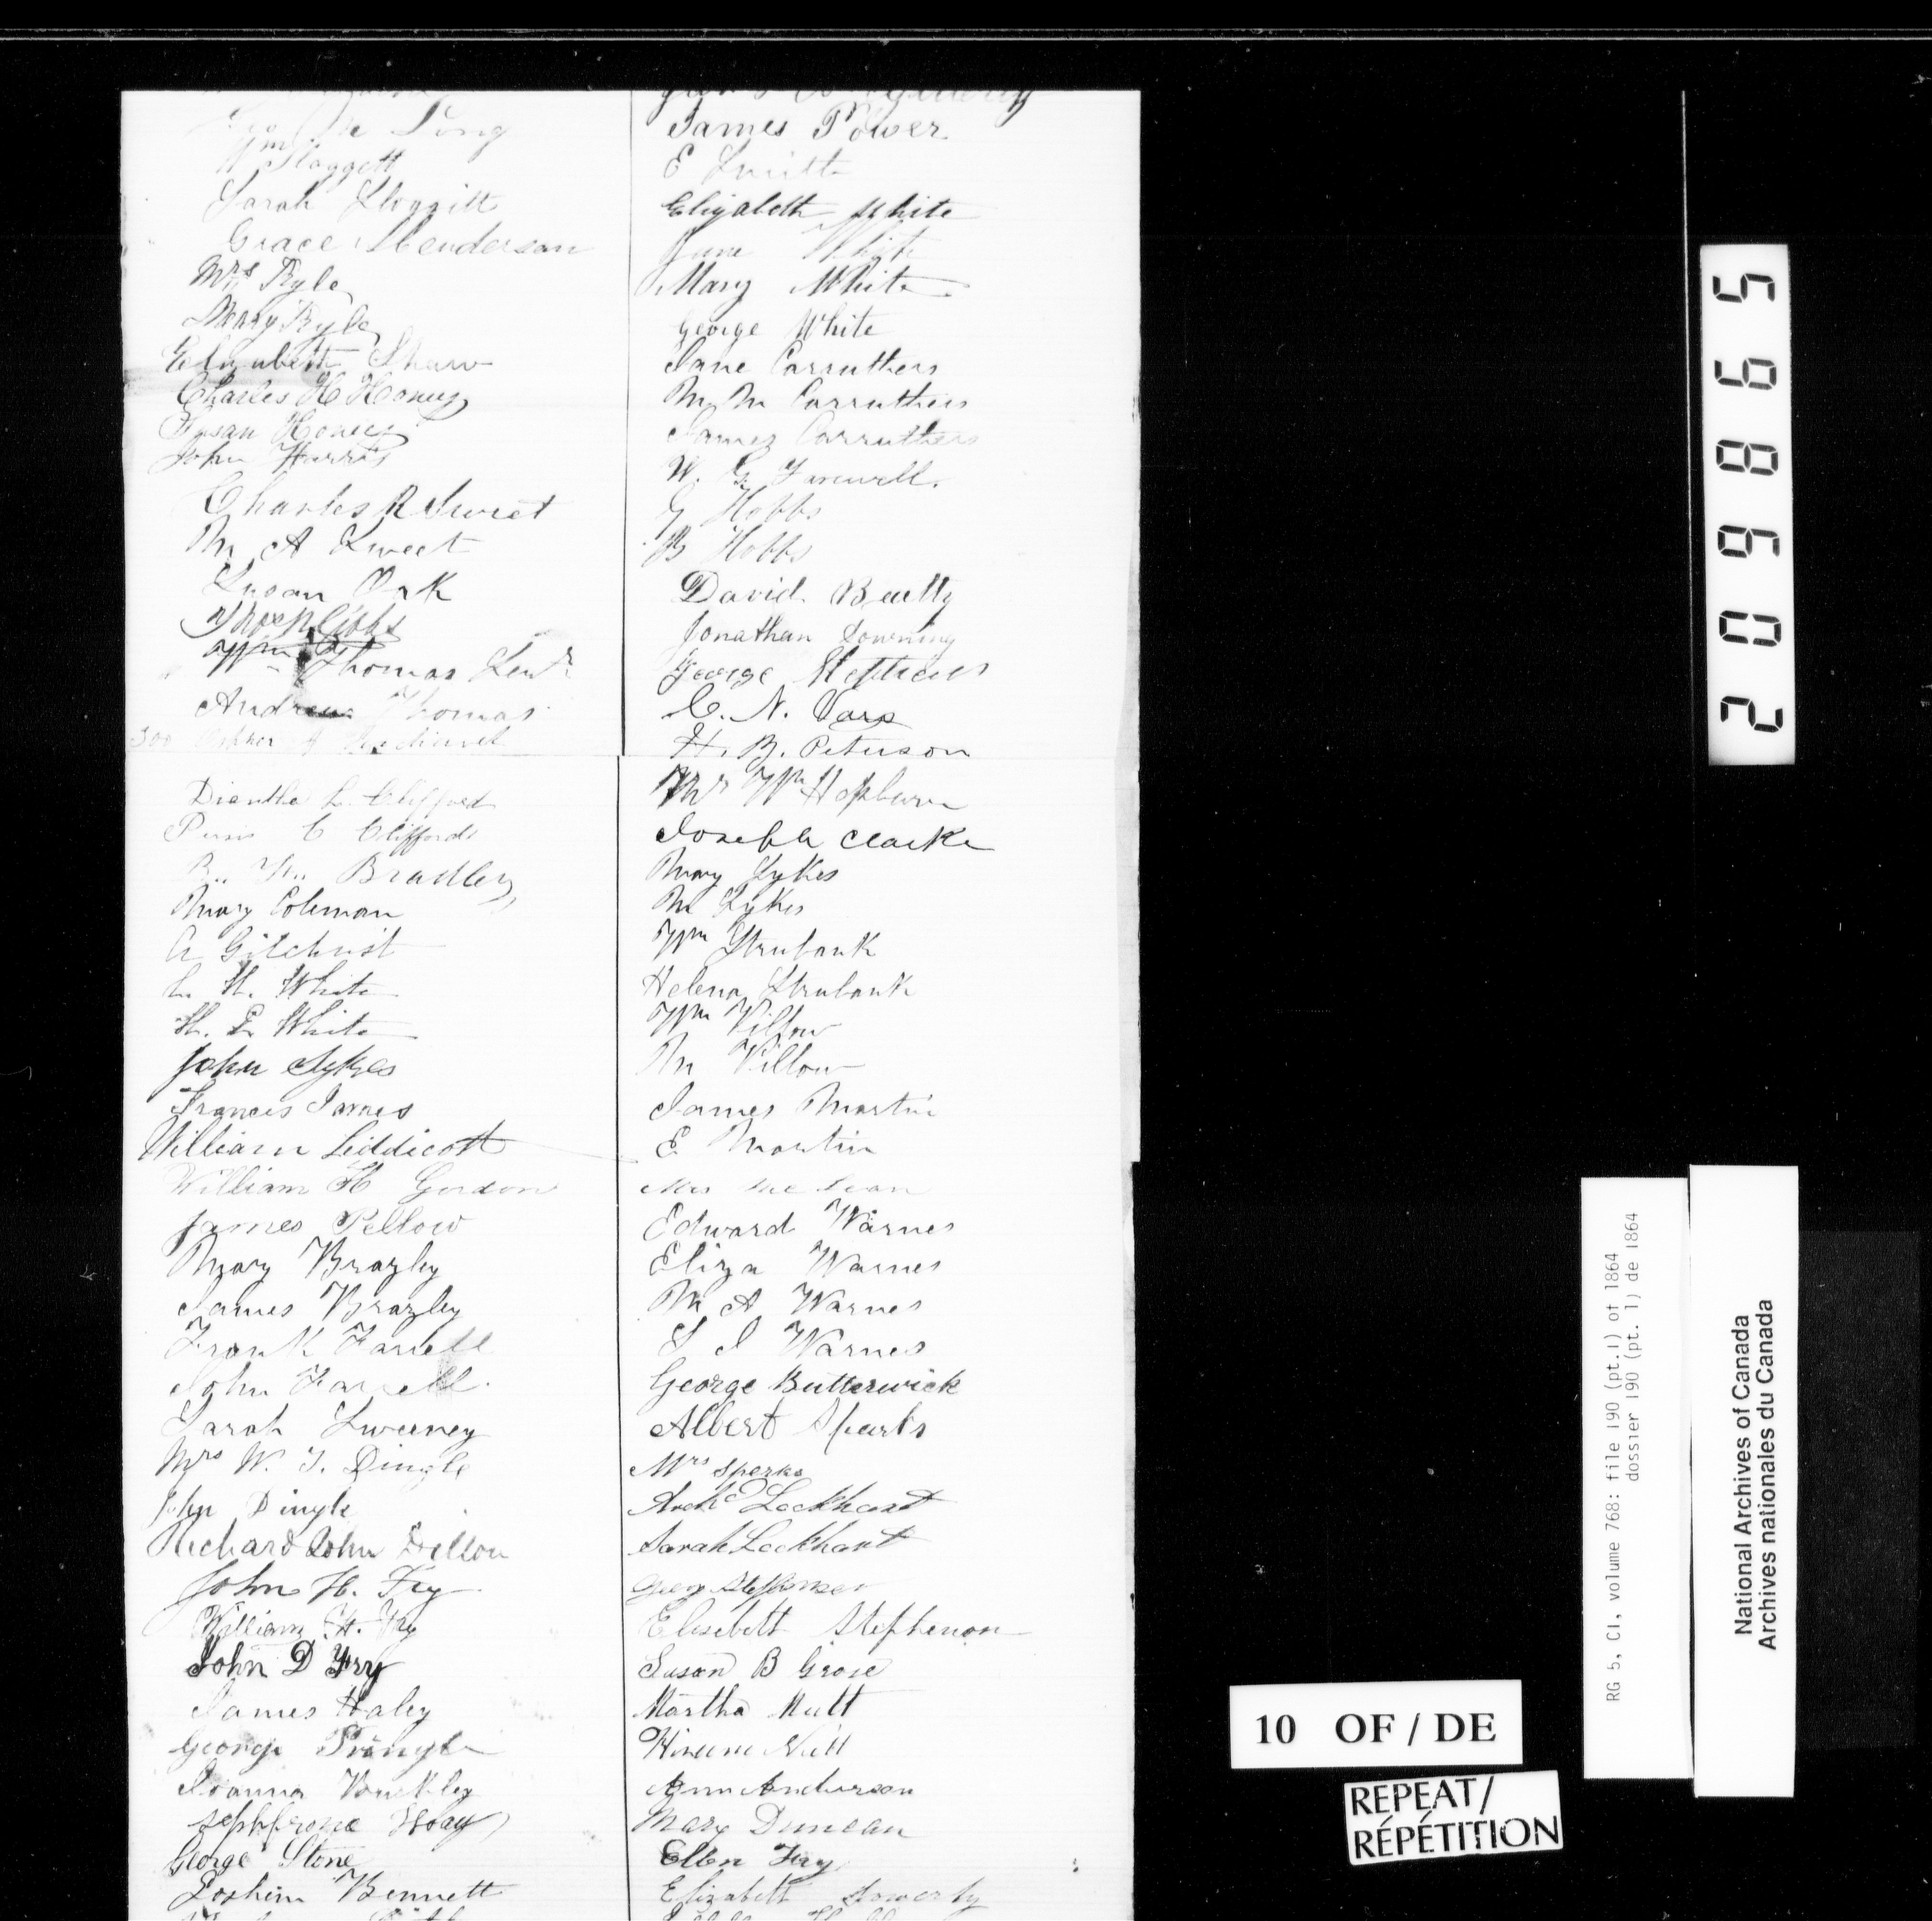 Wm Sloggett
Sarah Sloggitt
Grace Henderson
Mrs Ryle
Mary Ryle
Elizubeth Shaw
Charles H Honey
Susan Honey
John Harris
Charles R Sweet
M A Sweet
Susan Oak
Thos N Gibbs
Wm Thomas Senr
Andrew Thomas
300
Diantha L. Clifford
C Clifford
Bradley
Mary Coleman
A Gilchrist
L. H. White
H. E. White
John Sykes
Francis James
William Liddicott
William H Gordon
James Pellow
Mary Brazley
James Brazley
Frank Farrell
John Farrell
Sarah Sweeney
Mrs W. T. Dingle
John Dingle
Richard John Dellou
John H. Fry
William H. Fry
John D Fry
James Haley
George Pringle
Joanna
Hoag
George Stone
Bennett
James Power
E Smith
Elizabeth White
Jane White
Mary White
George White
Jane Carruthers
M M Carruthers
James Carruthers
W. G. Farewell.
G Hobbs
B Hobbs
David Beatty
Jonathan Downing
George
C. N. Vars
H. B. Peterson
Mr Wm Hepburn
Joseph Clarke
Mary Sykes
M Sykes
Wm Strubank
Helena Strubank
Wm Villow
M Villow
James Martin
E Martin
Mrs McLean
Edward Warnes
Eliza Warnes
M A Warnes
S J Warnes
George Butterwick
Albert Sparks
Mrs Sparks
Archd Lockhart
Sarah Lockhart
Elisebett Stephenson
Susan B Grose
Martha Nutt
Nutt
Ann Anderson
Mary Duncan
Ellen Fry
Elizabett Sowerby
209865
RG 5, C1, volume 768: file 190 (pt.1) of 1864
dossier 190 (pt. 1) de 1864
National Archives of Canada
Archives nationales du Canada
10 OF / DE
REPEAT/
RÉPÉTITION